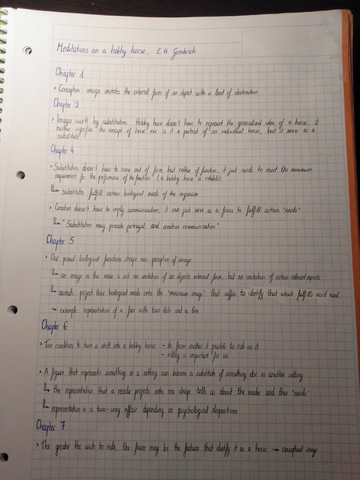 Meditations on a hobby horse. E.H. Gombrich
Chapter 1
• Conception: image imitates the external form of an object with a limit of abstraction
Chapter 2
• Images work by substitution. Hobby horse doesn't have to represent the generalized idea of a horse, it
neither signifies the concept of horse nor is it a portrait of an individual horse, but it serves as a
substitute
Chapter 4
• Substitution doesn't have to come out of form, but rather of function, it just needs to meet the minimum
requirement for the performance of the function (a hobby horse is ridable)
↳ substitutes fulfill certain biological needs of the organism
• Creation doesn't have to imply communication, it can just serve as a form to fulfill certain "needs"
↳ "Substitution may precede portrayal, and creation communication"
Chapter 5
• Our primal biological functions shape our perception of image
↳ an image in this sense is not an imitation of an objects external form, but an imitation of certain relevant aspects
↳ animals project their biological needs onto the "minimum image" that suffice to identify that which fulfills said need
→ example: representation of a face with two dots and a line
Chapter 6
• Two conditions to turn a stick into a hobby horse - its form makes it possible to ride on it
- riding is important for us
• A figure that represents something in a setting can become a substitute of something else in another setting
↳ the representation that a reader projects onto one shape tells us about the reader and their "needs"
↳ representation is a two-way affair depending on psychological dispositions
Chapter 7
• The greater the wish to ride, the fewer may be the features that identify it as a horse → conceptual image